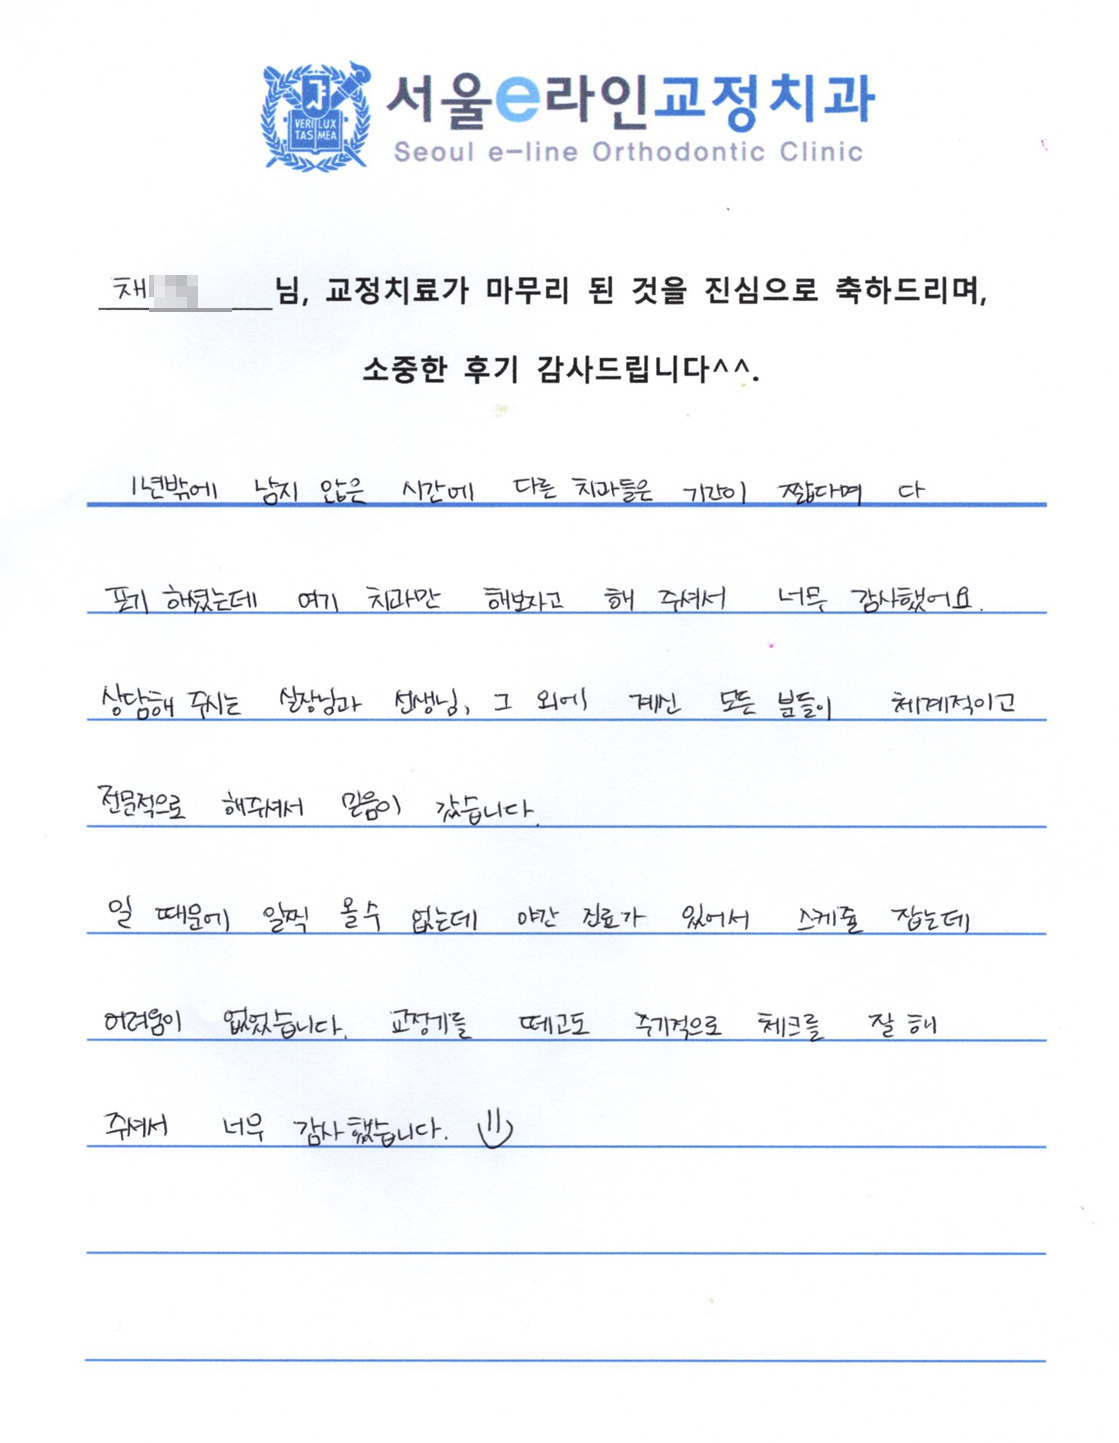 서울e라인교정치과
Seoul e-line Orthodontic Clinic
VERI LUX
TAS MEA
채 님, 교정치료가 마무리 된 것을 진심으로 축하드리며,
소중한 후기 감사드립니다^^.
1년밖에 남지 않은 시간에 다른 치과들은 기간이 짧다며 다
포기 하셨는데 여기 치과만 해보자고 해 주셔서 너무 감사했어요.
상담해 주시는 실장님과 선생님, 그 외에 계신 모든 분들이 체계적이고
전문적으로 해주셔서 믿음이 갔습니다.
일 때문에 일찍 올수 없는데 야간 진료가 있어서 스케줄 잡는데
어려움이 없었습니다. 교정기를 떼고도 주기적으로 체크를 잘 해
주셔서 너무 감사했습니다.